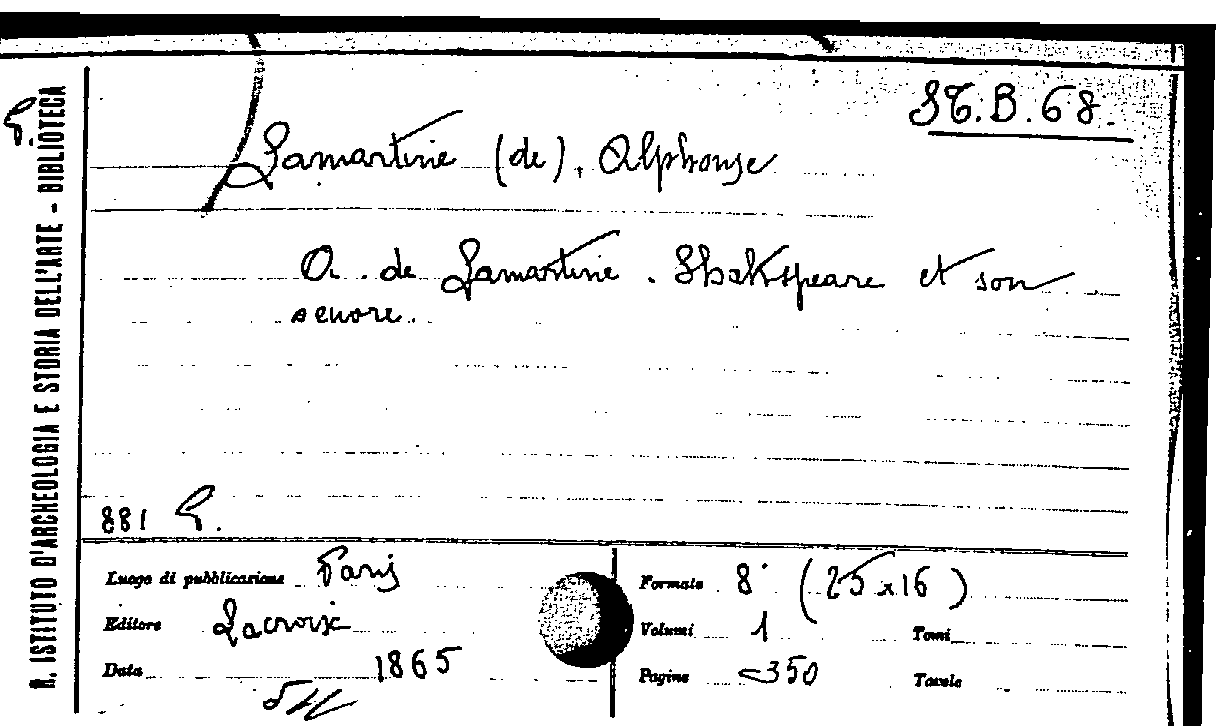 R. ISTITUTO D'ARCHEOLOGIA E STORIA DELL'ARTE - BIBLIOTECA
ST.B.68.
Lamartine (de), Alphonse
A. de Lamartine. Shakspeare et son
œuvre.
881 G.
Luogo di pubblicazione Paris
Editore Lacroix
Data 1865
Formato 8° (25x16)
Volumi 1 Tomi
Pagine 350 Tavole